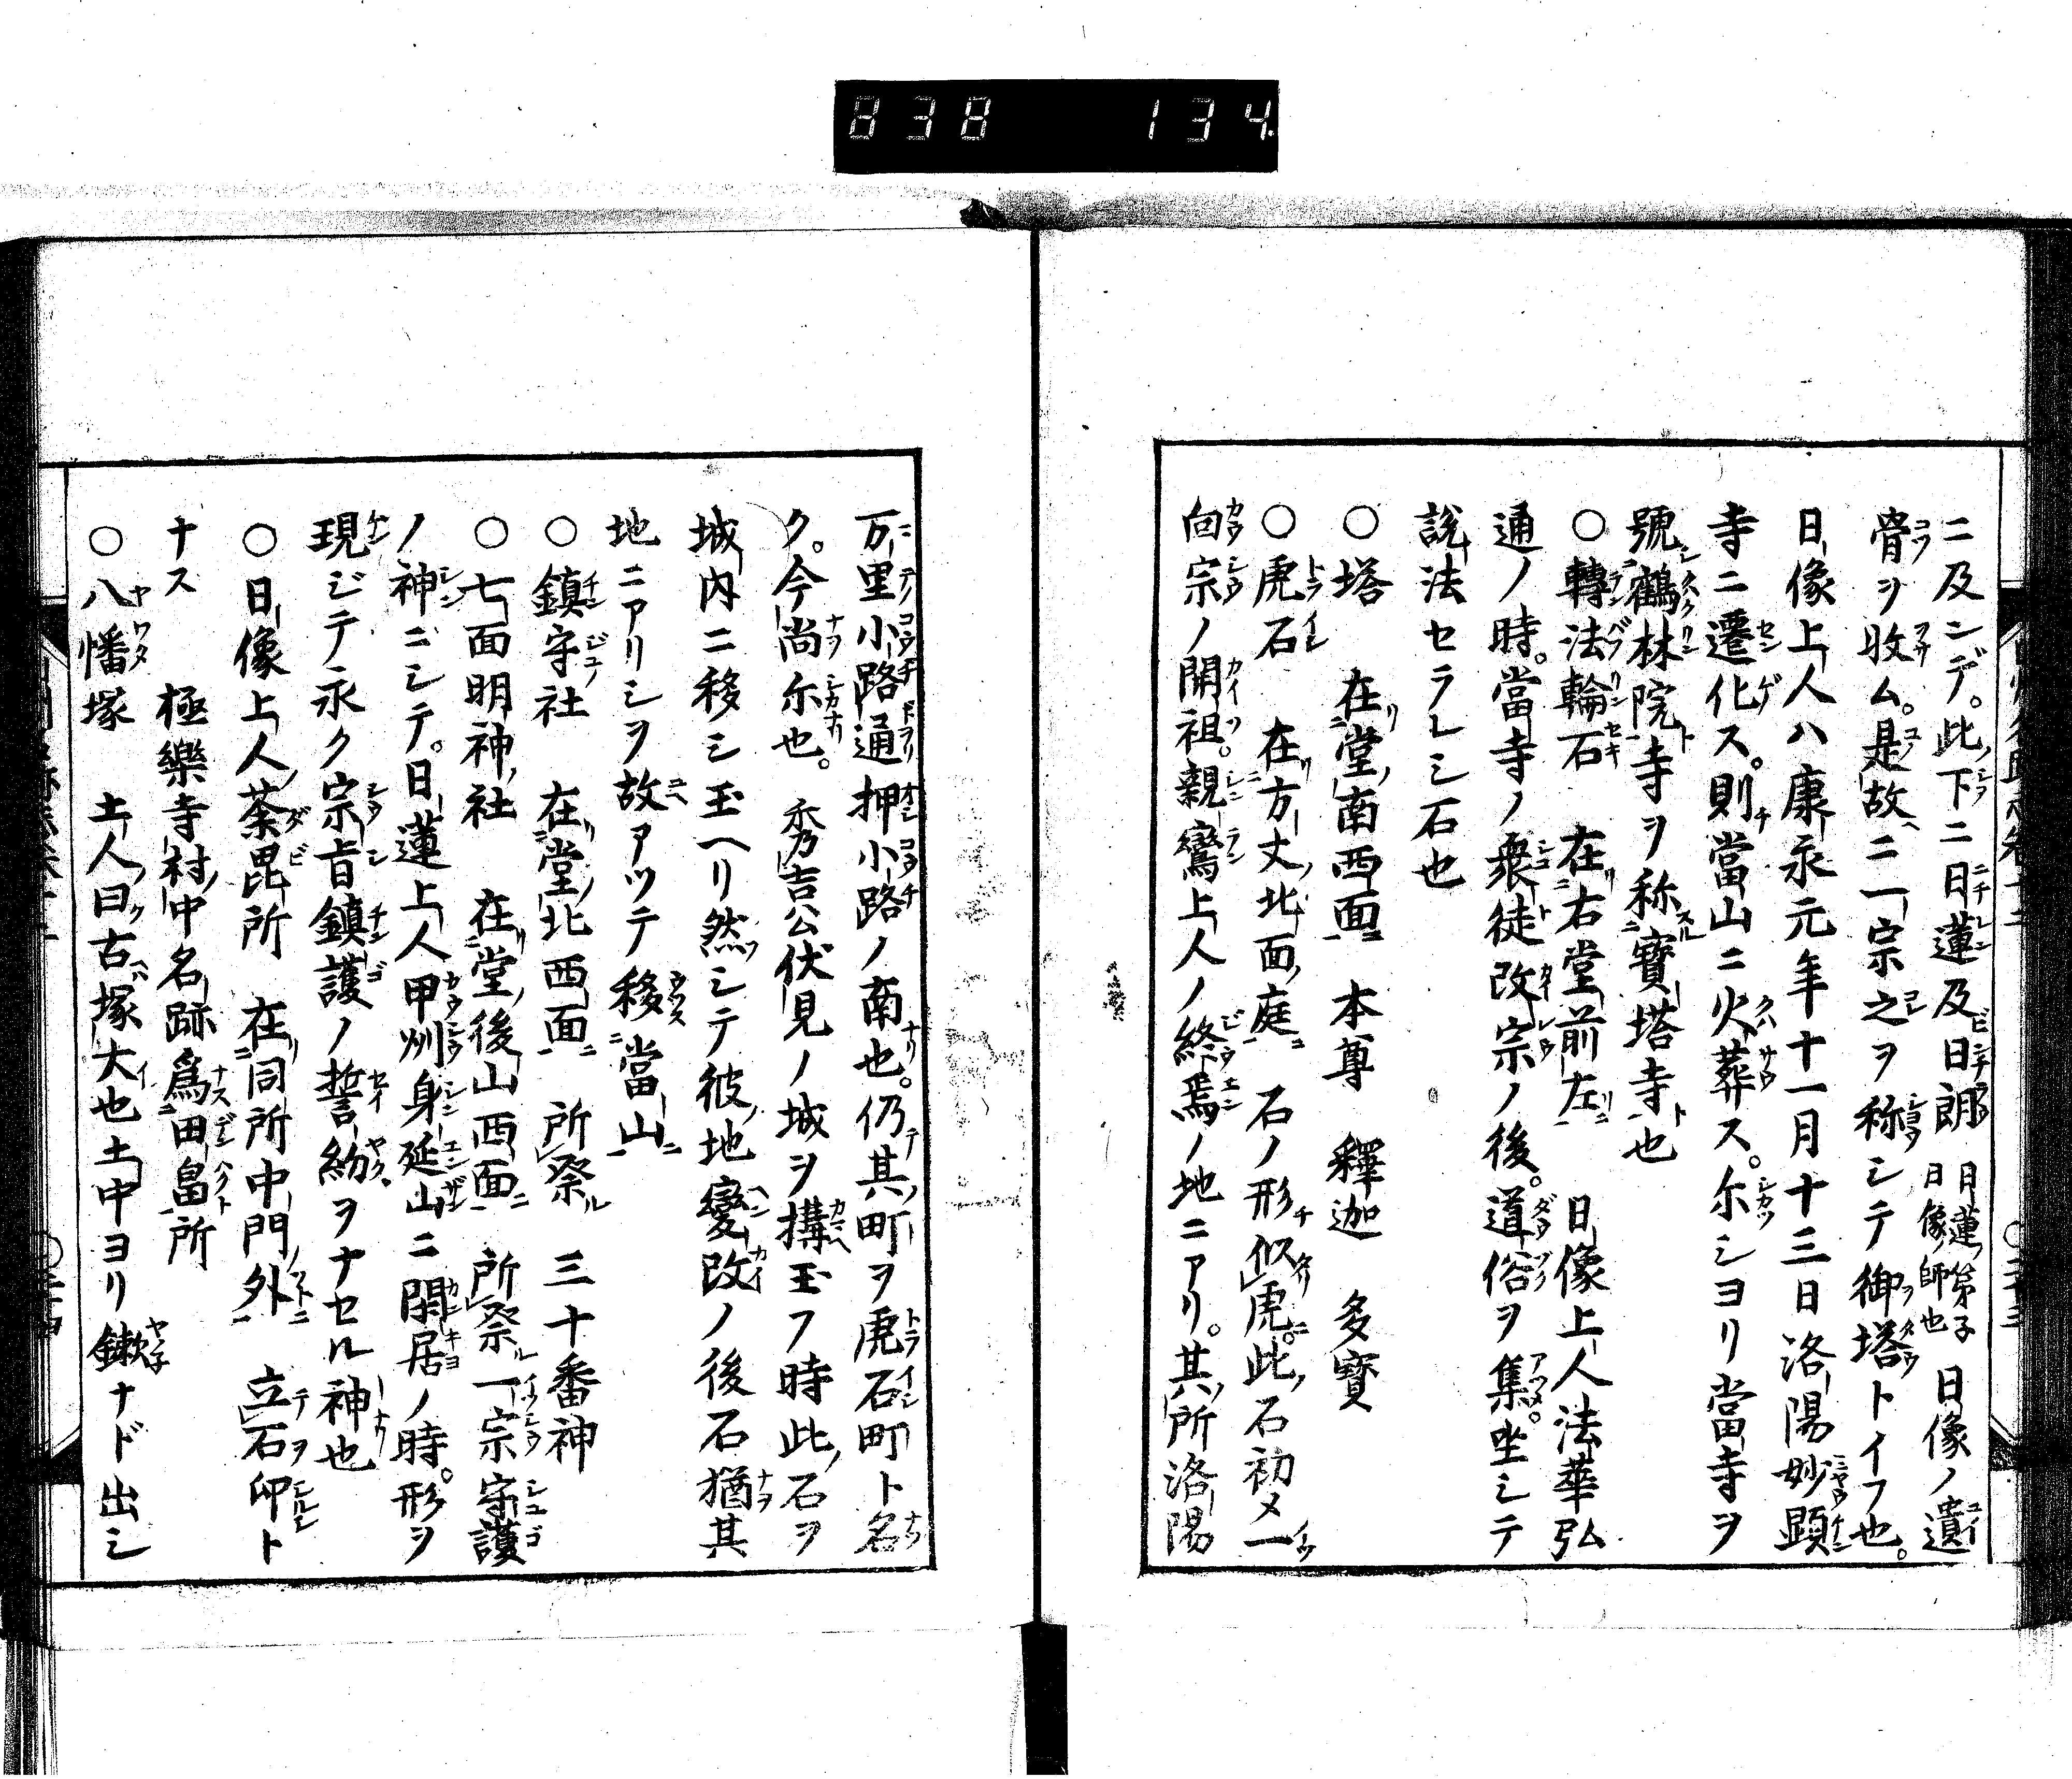 838 134
ニ及ンデ。此下ニ日蓮及日朗 日蓮ノ弟子日像ノ師也 日像ノ遺
骨ヲ收ム。是故ニ一宗之ヲ称シテ御塔トイフ也。
日像上人ハ康永元年十一月十三日洛陽妙顕
寺ニ遷化ス。則當山ニ火葬ス。尓シヨリ當寺ヲ
號鶴林院寺ヲ称寳塔寺也
○轉法輪石 在右堂前左 日像上人法華弘
通ノ時。當寺ノ衆徒改宗ノ後。道俗ヲ集。坐シテ
説法セラレシ石也
○塔 在堂南西面 本尊 釋迦 多寳
○虎石 在方丈北面庭 石ノ形似虎。此石初メ一
向宗ノ開祖。親鸞上人ノ終焉ノ地ニアリ。其所洛陽
万里小路通押小路ノ南也。仍其町ヲ虎石町ト名
ク。今尚尓也。秀吉公伏見ノ城ヲ搆玉フ時此石ヲ
城内ニ移シ玉ヘリ然シテ彼地變改ノ後石猶其
地ニアリシヲ故アツテ移當山
○鎮守社 在堂北西面 所祭 三十番神
○七面明神社 在堂後山西面 所祭一宗守護
ノ神ニシテ。日蓮上人甲州身延山ニ閑居ノ時。形ヲ
現ジテ永ク宗旨鎮護ノ誓約ヲナセル神也
○日像上人荼毘所 在同所中門外 立石印ト
ナス 極樂寺村中名跡爲田畠所
○八幡塚 土人曰古塚大也土中ヨリ鏃ナド出シ